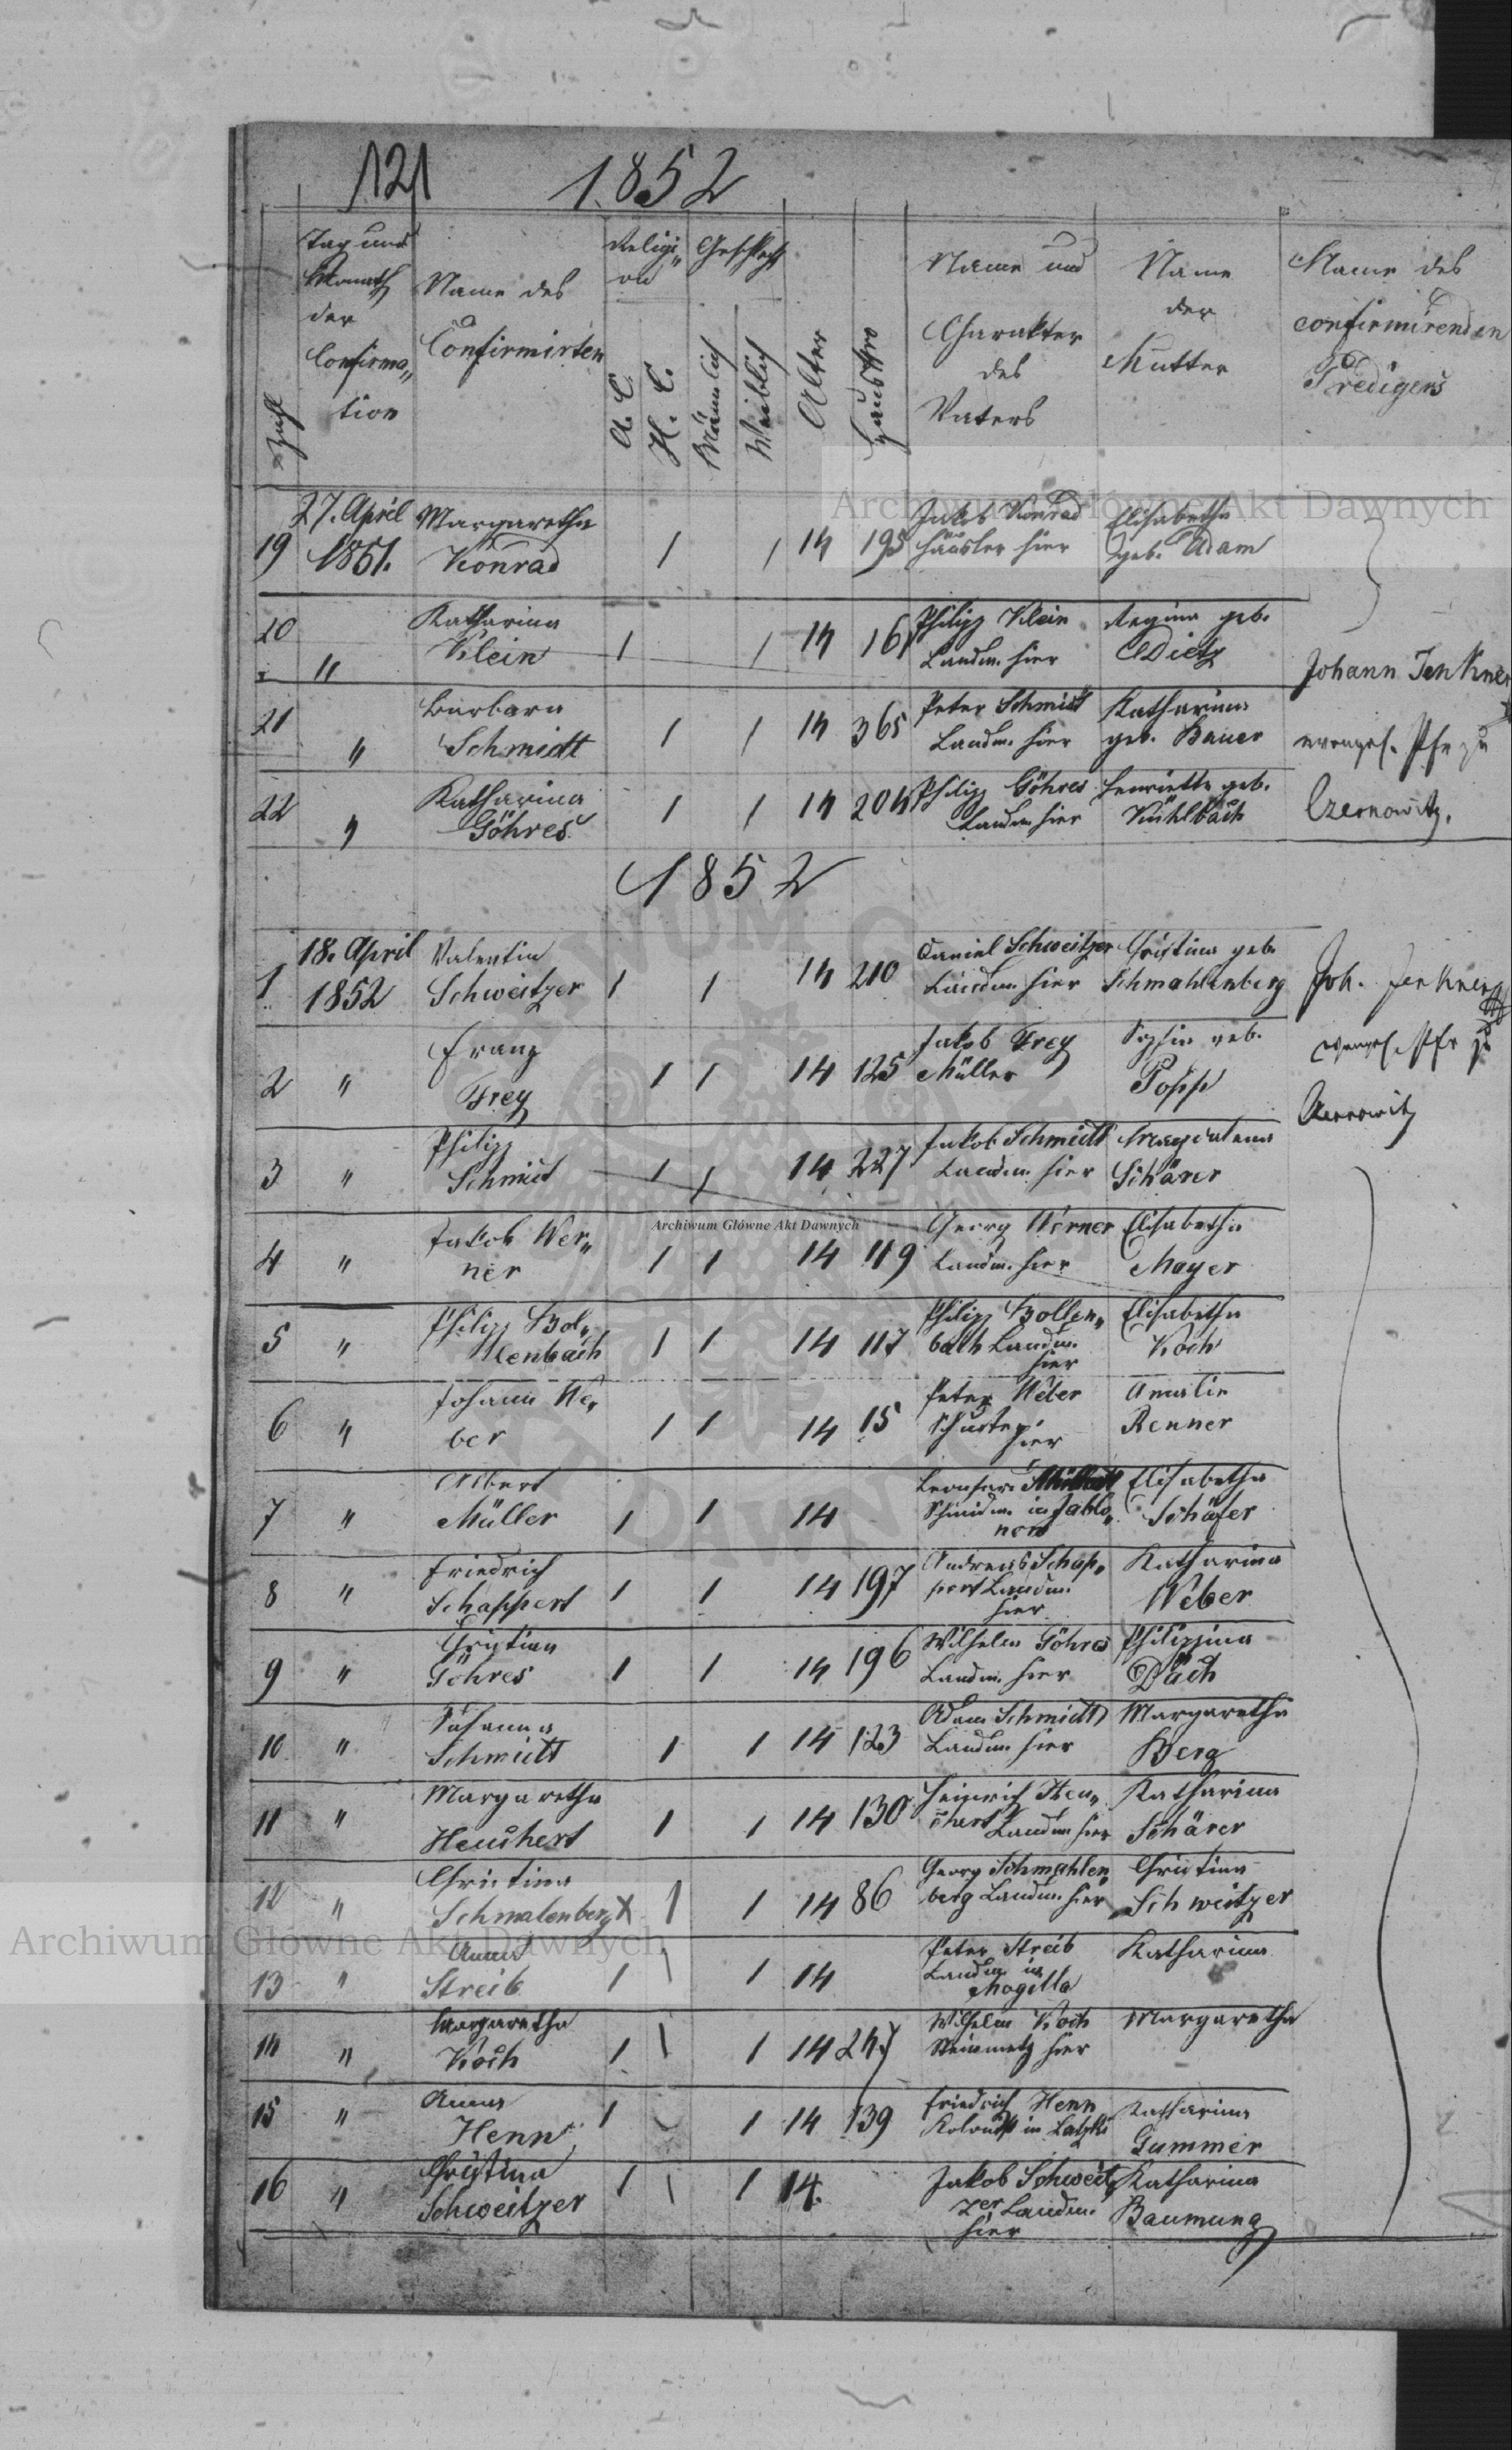 121 1852
Zahl
Tag und Monath der Confirma„tion
Name des Confirmirten
Religi„on
A. C.
H. C.
Geschlecht
Männlich
Weiblich
Alter
Haus Nro
Name und Charakter des Vaters
Name der Mutter
Name des confirmirenden Predigers
19 27. April Margaretha 1 1 14 195 Jakob Konrad Elisabetha
1851. Konrad Häusler hier geb. Adam
20 Katharina 1 1 14 161 Philipp Klein Regina geb.
" Klein Landm. hier Dietz
Johann Jenkner
21 Barbara 1 1 14 365 Peter Schmidt Katharina
" Schmidt Landm. hier geb. Bauer
evangel. Pfr zu
22 Katharina 1 1 14 204 Philipp Göhres Henriette geb.
" Göhres Landm. hier Kühlbach
Czernowitz.
1852
1 18. April Valentin 1 1 14 210 Daniel Schweitzer Christina geb.
1852 Schweitzer Landm. hier Schmahlenberg
Joh. Jenkner
2 " Franz 1 1 14 125 Jakob Frey Sophia geb.
Frey Müller Popp
evangel. Pfr zu
Czernowitz
3 " Philipp 1 1 14 227 Jakob Schmidt Magdalena
Schmidt Landm. hier Schärer
4 " Jakob Wer„ 1 1 14 119 Georg Werner Elisabetha
ner Landm. hier Mayer
5 " Philipp Bol„ 1 1 14 117 Philipp Bollen„ Elisabetha
lenbach bach Landm. Koch
hier
6 " Johann We„ 1 1 14 15 Peter Weber Amalie
ber Schuster hier Renner
7 " Albert 1 1 14 Leonhard Elisabetha
Müller Schmidm. in Jablo„ Schäfer
now
8 " Friedrich 1 1 14 197 Andreas Schap„ Katharina
Schappert pert Landm. Weber
hier
9 " Christian 1 1 14 196 Wilhelm Göhres Philippina
Göhres Landm. hier Däch
10 " Susanna 1 1 14 123 Adam Schmidt Margaretha
Schmidt Landm. hier Berg
11 " Margaretha 1 1 14 130 Heinrich Heu„ Katharina
Heuchert chert Landm. hier Schärer
12 " Christina X 1 1 14 86 Georg Schmahlen„ Christina
Schmalenberg berg Landm. hier Schweitzer
13 " Anna 1 1 1 14 Peter Streib Katharina
Streib Landm. in
Mogilla
14 " Margaretha 1 1 1 14 247 Wilhelm Koch Margaretha
Koch Steinmetz hier
15 " Anna 1 1 14 139 Friedrich Henn Katharina
Henn Kolonist in Gummer
16 " Christina 1 1 1 14. Jakob Schweit„ Katharina
Schweitzer zer Landm. Baumung
hier
Archiwum Główne Akt Dawnych
Archiwum Główne Akt Dawnych
Archiwum Główne Akt Dawnych